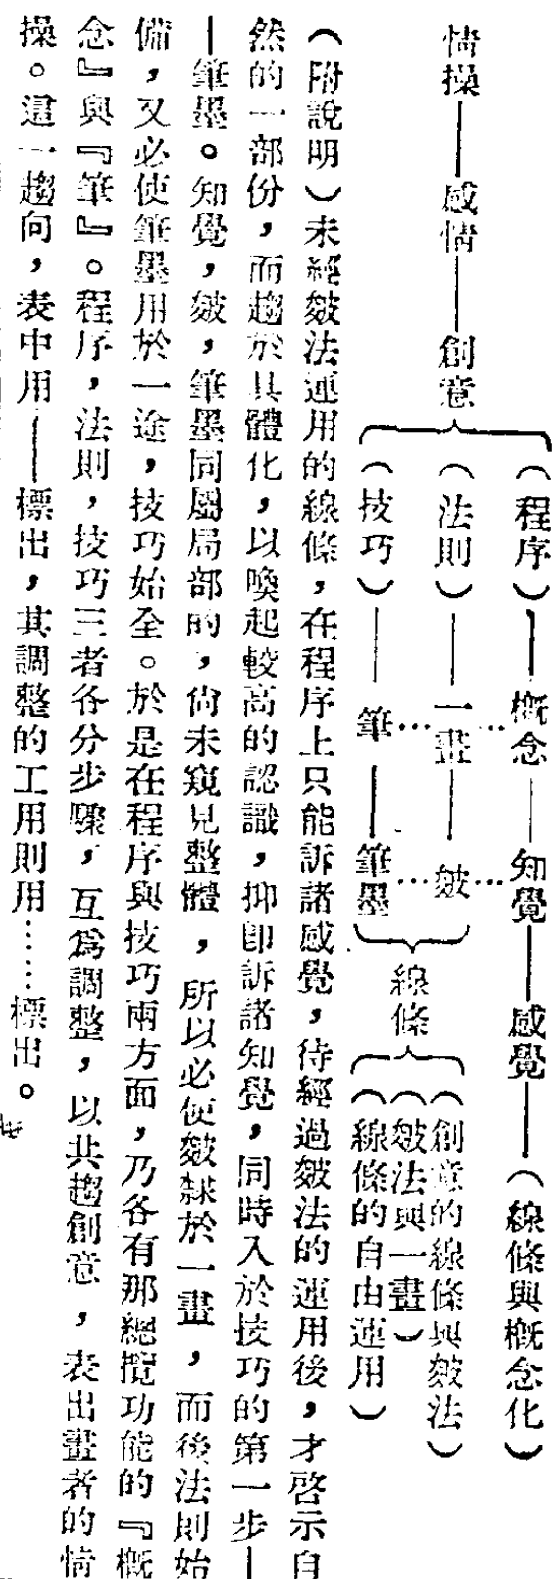 (程序)——概念——知覺——感覺——(線條與概念化)
……
(法則)——一畫——皴
(創意的線條與皴法)
情操——感情——創意
線條
(皴法與一畫)
……
(技巧)——筆——筆墨
(線條的自由運用)
(附說明)未經皴法運用的線條,在程序上只能訴諸感覺,待經過皴法的運用後,才啓示自
然的一部份,而趨於具體化,以喚起較高的認識,抑卽訴諸知覺,同時入於技巧的第一步—
—筆墨。知覺,皴,筆墨同屬局部的,尙未窺見整體,所以必使皴隸於一畫,而後法則始
備,又必使筆墨用於一途,技巧始全。於是在程序與技巧兩方面,乃各有那總攬功能的『概
念』與『筆』。程序,法則,技巧三者各分步驟,互爲調整,以共趨創意,表出畫者的情
操。這一趨向,表中用——標出,其調整的工用則用……標出。